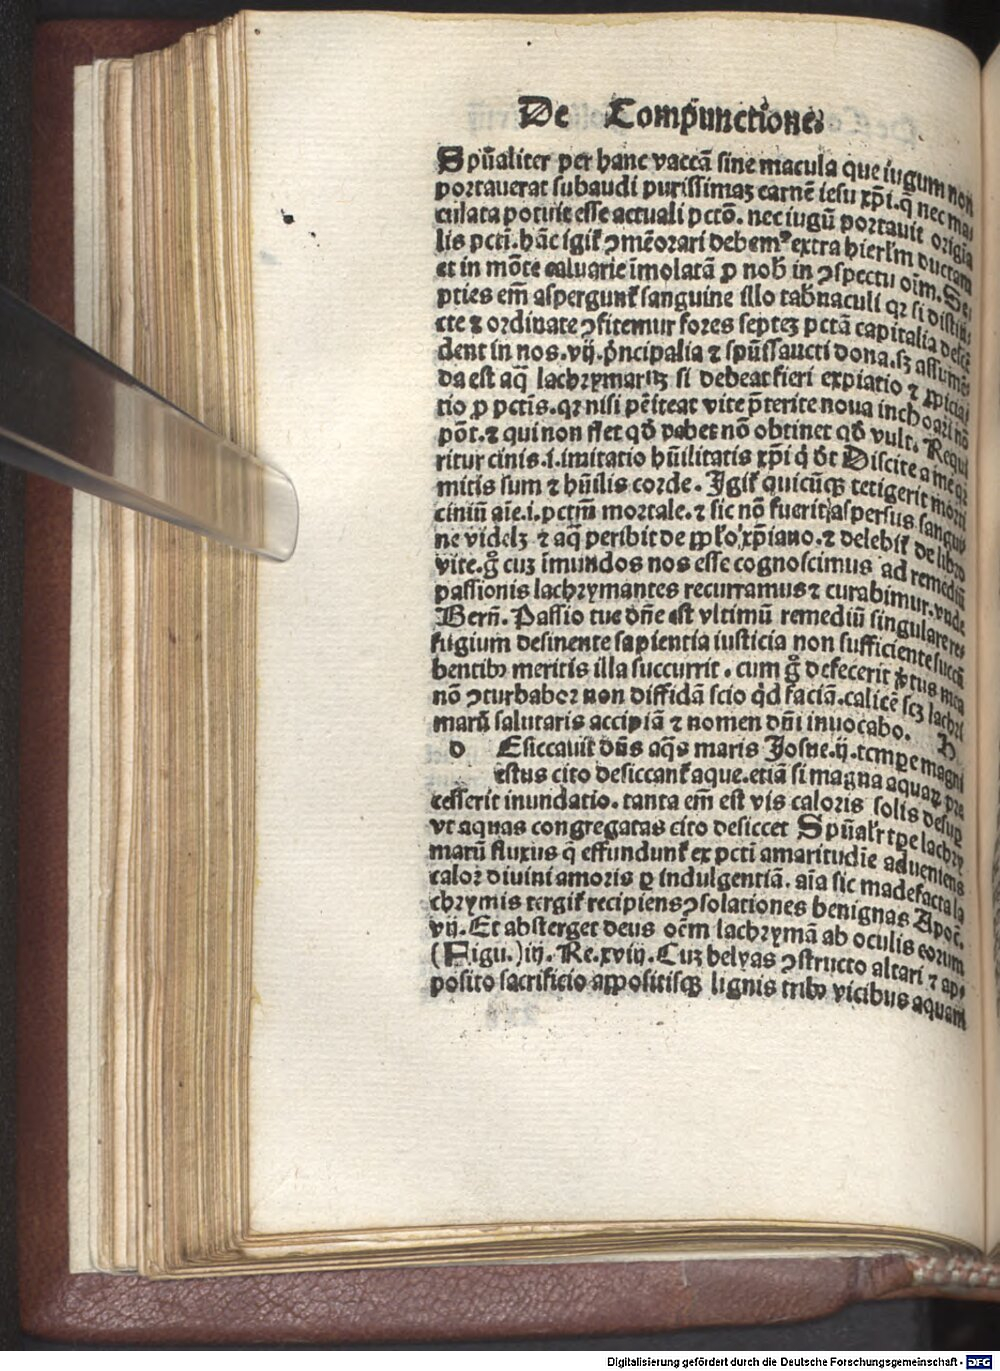 De Compunctione.
Spũaliter per hanc vaccã sine macula que iugum non
portauerat subaudi purissimaȝ carnẽ iesu xp̃i. q̃ nec ma⸗
culata potuit esse actuali pctõ. nec iugũ portauit origia
lis pcti. hãc igiť ꝯmẽorari debem⁹ extra hierl̃m ductam
et in mõte caluarie ĩmolatã ꝓ nob̃ in ꝯspectu oĩm. Se⸗
pties em̃ aspergunť sanguine illo tab̃naculi qꝛ si distin⸗
cte ⁊ ordinate ꝯfitemur fores septeȝ pctã capitalia descẽ
dent in nos. vij. p̃ncipalia ⁊ spũssancti dona. sȝ assumẽ⸗
da est aq̃ lachrymaritȝ si debeat fieri expiatio ⁊ ꝓpicia⸗
tio ꝓ pctis. qꝛ nisi pẽiteat vite p̃terite noua inchoari nõ
põt. ⁊ qui non flet qð habet nõ obtinet qð vult. Requi
ritur cinis. i. imitatio hũilitatis xp̃i q̃ dt̃ Discite a me qꝛ
mitis sum ⁊ hũilis corde. Igiť quicũqꝫ tetigerit morti
ciniũ aĩe. i. pctm̃ mortale. ⁊ sic nõ fuerit aspersus sangui
ne videlȝ ⁊ aq̃ peribit de ꝓpl̃o xp̃iano. ⁊ delebiť de libro
vite. g̃ cuȝ ĩmundos nos esse cognoscimus ad remediũ
passionis lachrymantes recurramus ⁊ curabimur. vnde
Bern̄. Passio tue dñe est vltimũ remediũ singulare re⸗
fugium desinente sapientia iusticia non sufficiente succũ
bentibꝰ meritis illa succurrit. cum g̃ defecerit ꝟtus mea
nõ ꝯturbabor non diffidã scio qd faciã. calicẽ scȝ lachri
marũ salutaris accipiã ⁊ nomen dñi inuocabo. H
d Esiccauit dñs aq̃s maris Iosue. ij. temꝑe magni
estus cito desiccanť aque. etiã si magna aquaꝝ pre
cesserit inundatio. tanta em̃ est vis caloris solis desuꝑ
vt aquas congregatas cito desiccet Spũalr̃ tꝑe lachry
marũ fluxus q̃ effundunť ex pcti amaritudĩe adueniens
calor diuini amoris ꝑ indulgentiã. aĩa sic madefacta la
chrymis tergiť recipiens ꝯsolationes benignas Apoc̃.
vij. Et absterget deus oẽm lachrymã ab oculis eorum
(Figu.) iij. Re. xviij. Cuȝ helyas ꝯstructo altari ⁊ ap⸗
posito sacrificio appositisqꝫ lignis tribꝰ vicibus aquam
Digitalisierung gefördert durch die Deutsche Forschungsgemeinschaft - DFG